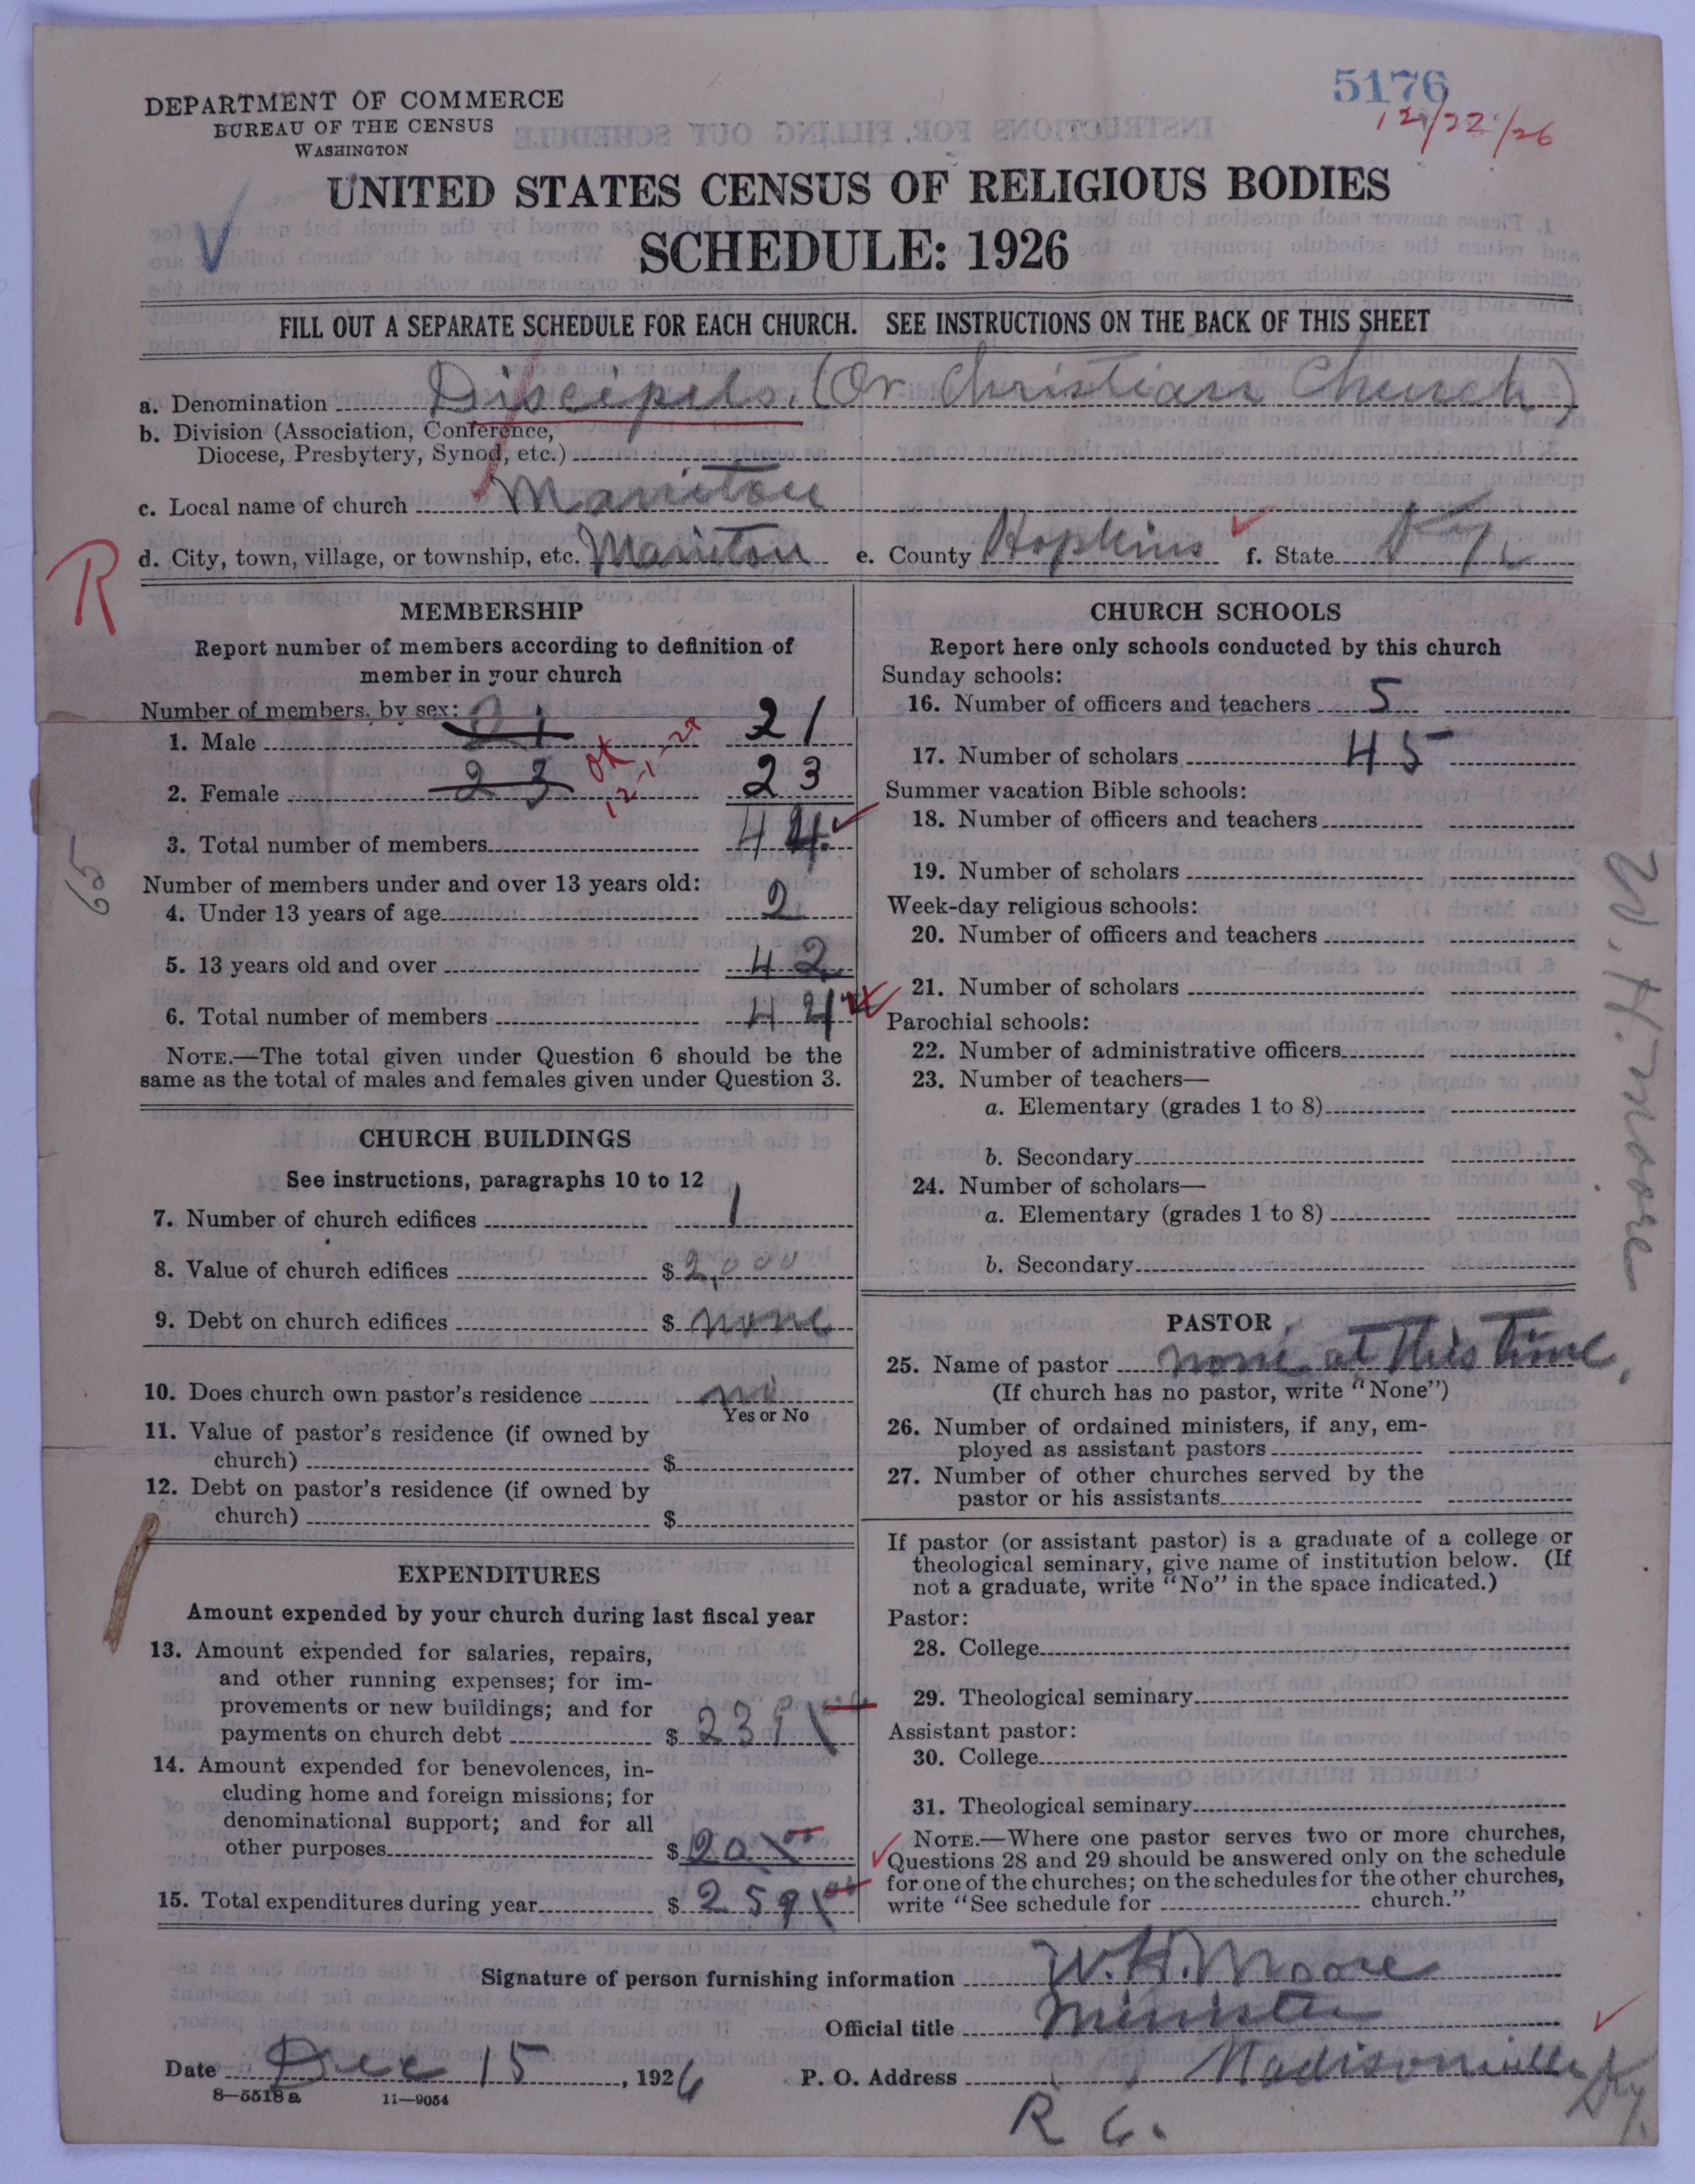 5176
12/22/26
DEPARTMENT OF COMMERCE
BUREAU OF THE CENSUS
WASHINGTON
UNITED STATES CENSUS OF RELIGIOUS BODIES
SCHEDULE: 1926
FILL OUT A SEPARATE SCHEDULE FOR EACH CHURCH. SEE INSTRUCTIONS ON THE BACK OF THIS SHEET
a. Denomination Discipels. (Or Christian Church)
b. Division (Association, Conference,
Diocese, Presbytery, Synod, etc.)
c. Local name of church Manitou
d. City, town, village, or township, etc. Manitou e. County Hopkins f. State Ky.
R
MEMBERSHIP
Report number of members according to definition of
member in your church
Number of members, by sex:
1. Male 21 21
2. Female 23 23
OK 12-1-27
3. Total number of members 44
65
Number of members under and over 13 years old:
4. Under 13 years of age 2
5. 13 years old and over 42
6. Total number of members 44
NOTE.—The total given under Question 6 should be the
same as the total of males and females given under Question 3.
CHURCH BUILDINGS
See instructions, paragraphs 10 to 12
7. Number of church edifices 1
8. Value of church edifices $ 2,000
9. Debt on church edifices $ none
10. Does church own pastor's residence no
Yes or No
11. Value of pastor's residence (if owned by
church) $
12. Debt on pastor's residence (if owned by
church) $
EXPENDITURES
Amount expended by your church during last fiscal year
13. Amount expended for salaries, repairs,
and other running expenses; for im-
provements or new buildings; and for
payments on church debt $ 239
14. Amount expended for benevolences, in-
cluding home and foreign missions; for
denominational support; and for all
other purposes $ 20 00
15. Total expenditures during year $ 259 00
CHURCH SCHOOLS
Report here only schools conducted by this church
Sunday schools:
16. Number of officers and teachers 5
17. Number of scholars 45
Summer vacation Bible schools:
18. Number of officers and teachers
19. Number of scholars
Week-day religious schools:
20. Number of officers and teachers
21. Number of scholars
Parochial schools:
22. Number of administrative officers
23. Number of teachers—
a. Elementary (grades 1 to 8)
b. Secondary
24. Number of scholars—
a. Elementary (grades 1 to 8)
b. Secondary
W. H. Moore
PASTOR
25. Name of pastor none at this time.
(If church has no pastor, write "None")
26. Number of ordained ministers, if any, em-
ployed as assistant pastors
27. Number of other churches served by the
pastor or his assistants
If pastor (or assistant pastor) is a graduate of a college or
theological seminary, give name of institution below. (If
not a graduate, write "No" in the space indicated.)
Pastor:
28. College
29. Theological seminary
Assistant pastor:
30. College
31. Theological seminary
NOTE.—Where one pastor serves two or more churches,
Questions 28 and 29 should be answered only on the schedule
for one of the churches; on the schedules for the other churches,
write "See schedule for church."
Signature of person furnishing information W. H. Moore
Official title Minister
Date Dec 15, 1926 P. O. Address Madisonville Ky.
8—5518 a 11—9054
R 6.